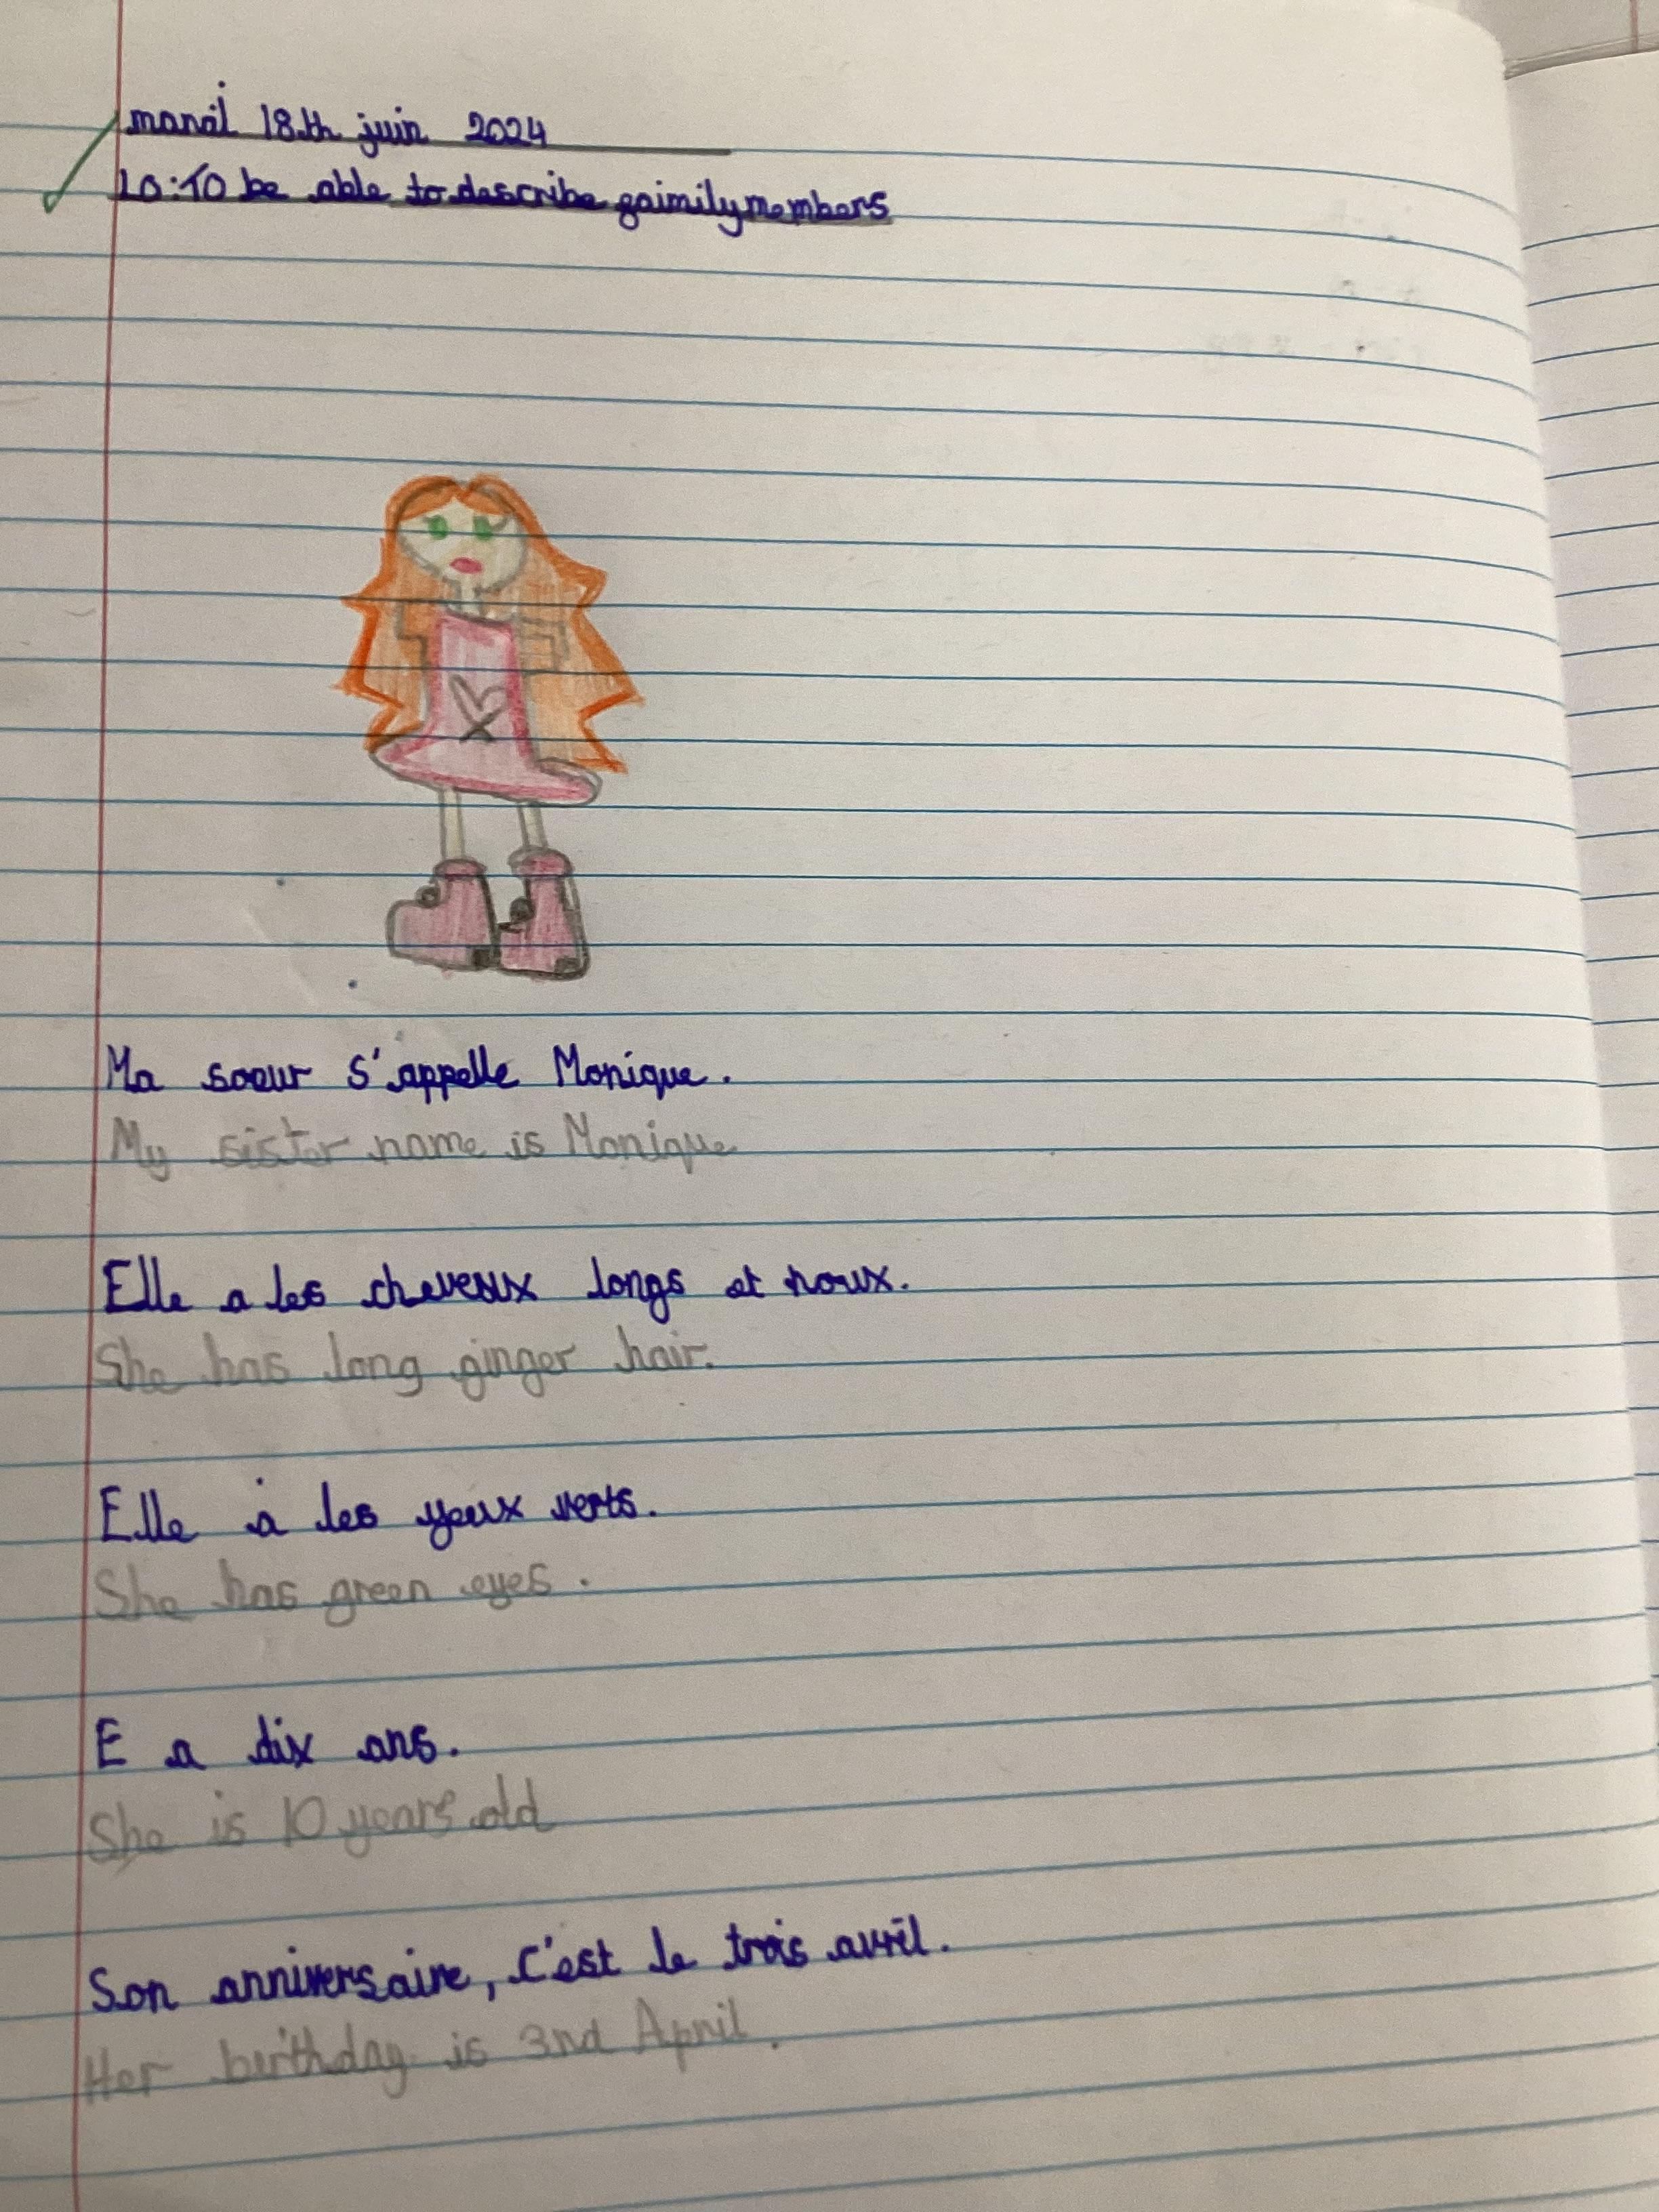 mardi 18th juin 2024
LO: TO be able to describe gaimily members
Ma soeur s'appelle Monique.
My sister name is Monique
Elle a les cheveux longs et roux.
She has long ginger hair.
Elle à les yeux verts.
She has green eyes.
E a dix ans.
She is 10 years old
Son anniversaire, c'est le trois avril.
Her birthday is 3nd April.